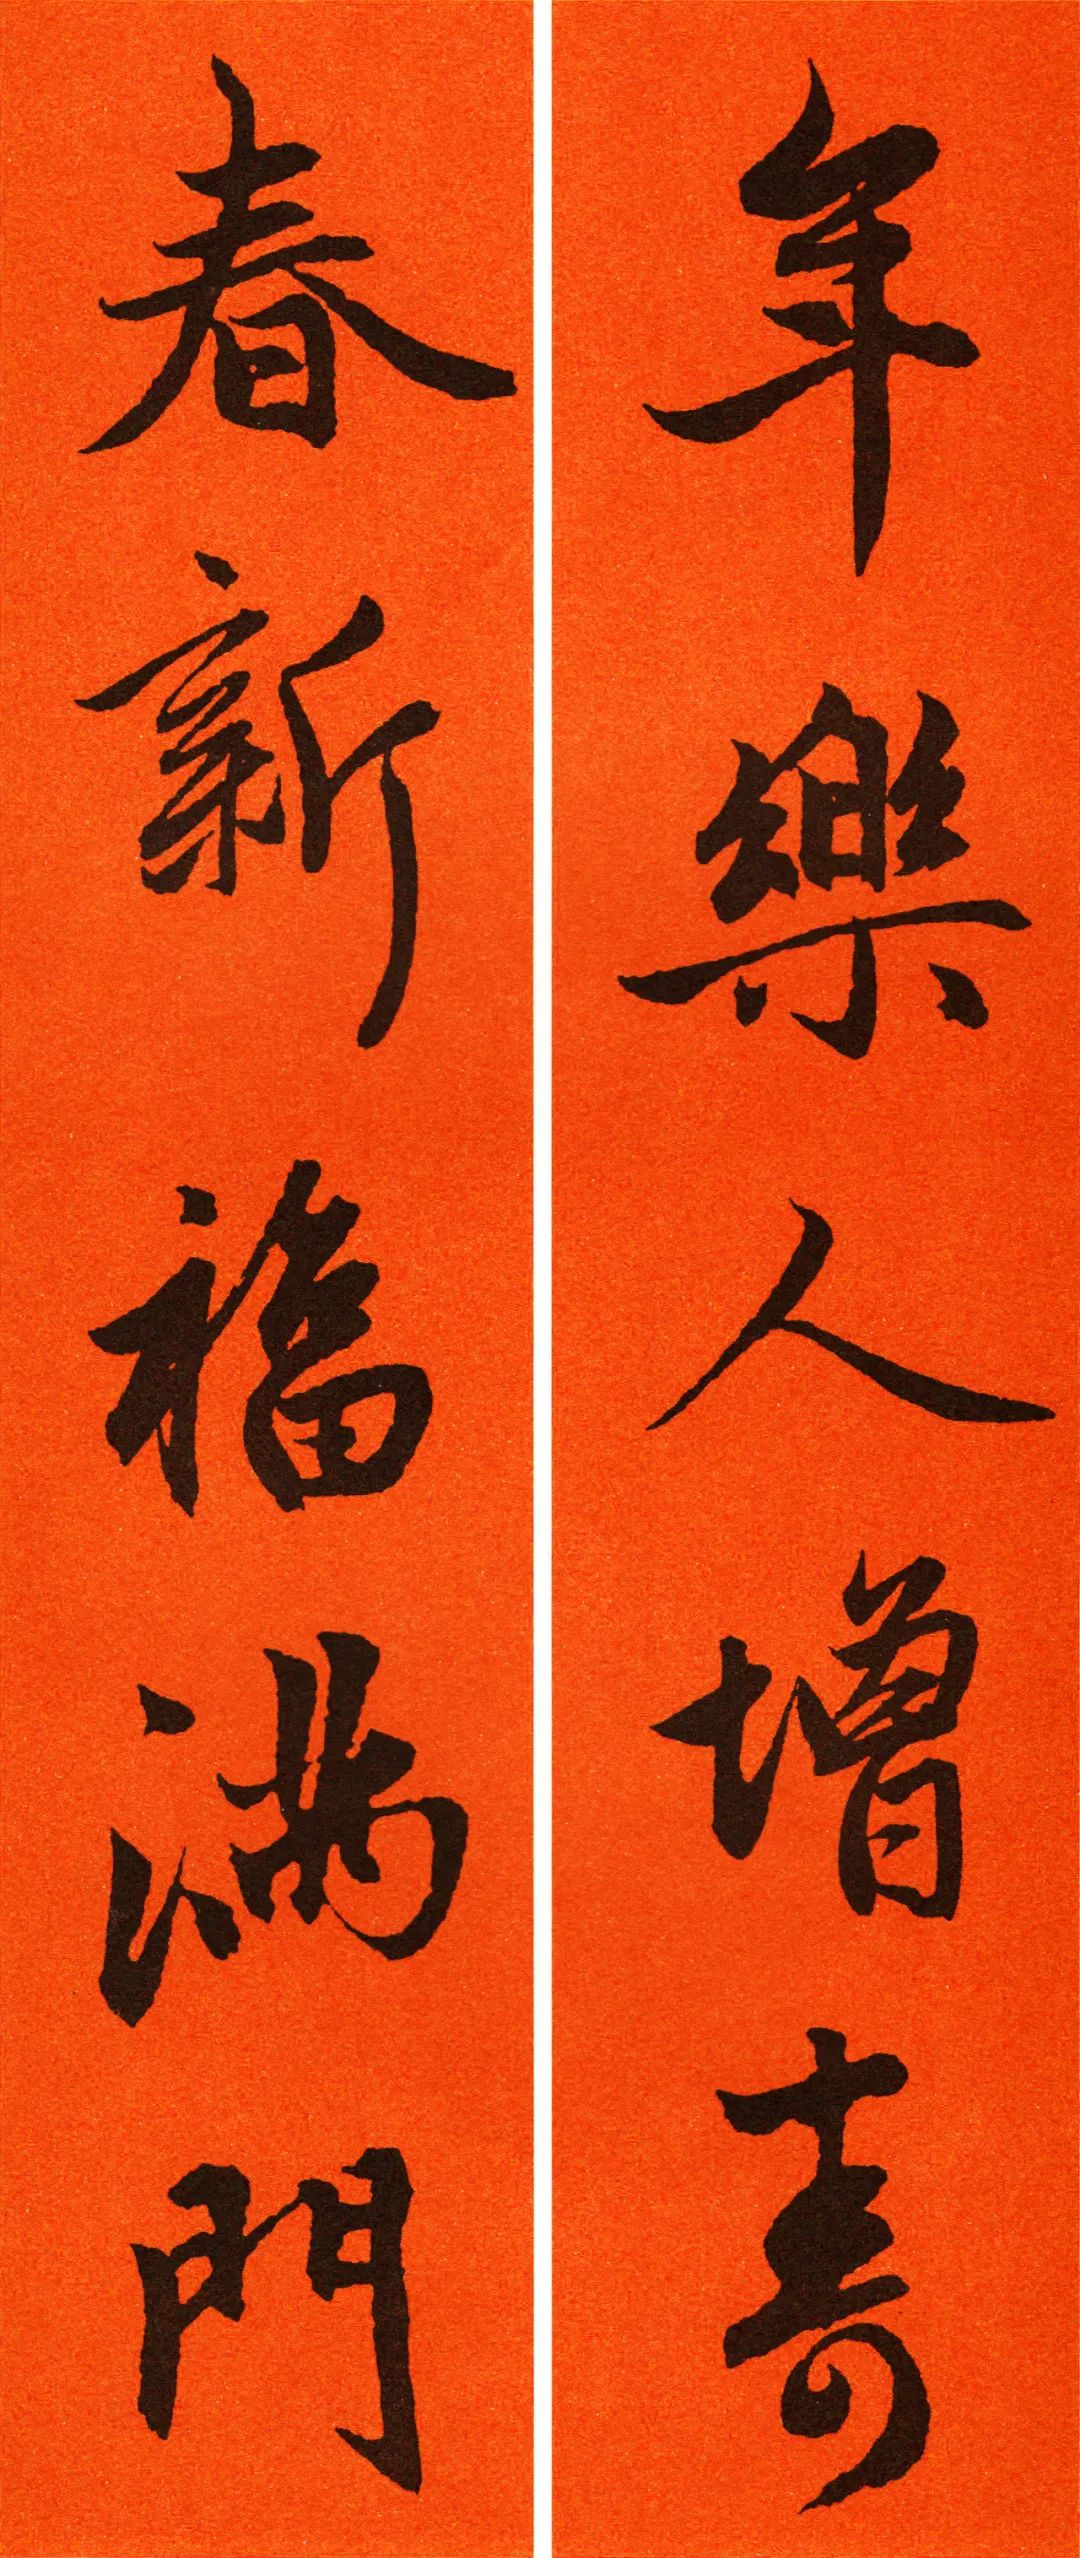 年樂人增壽
春新福滿門